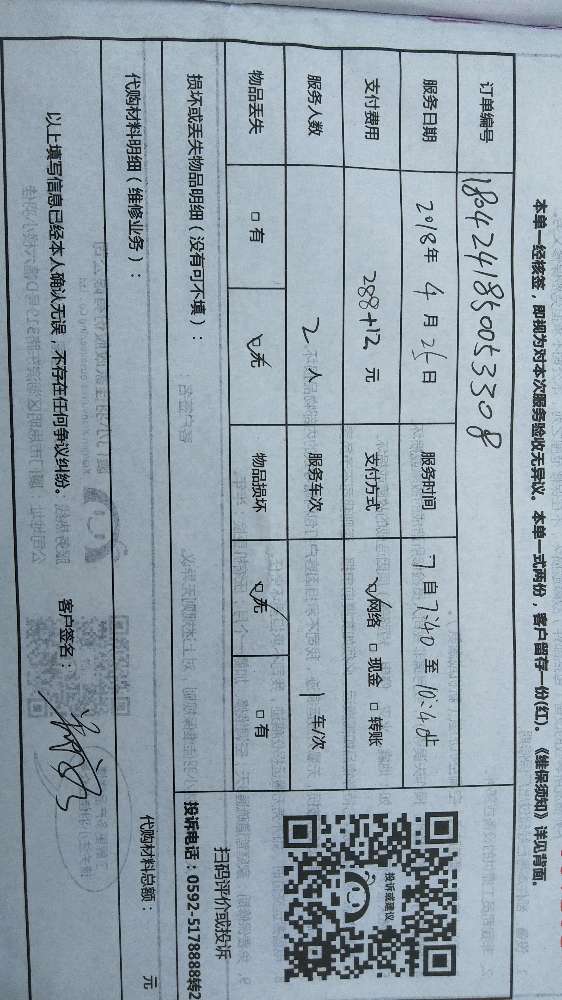 本单一经核签，即视为对本次服务验收无异议。本单一式两份，客户留存一份(红)。《维保须知》详见背面。
订单编号 180424185005 3308
服务日期 2018年 4月 25日 服务时间 自 7:40 至 10:40止
支付费用 288+12 元 支付方式 ☑网络 □现金 □转账
服务人数 2 人 服务车次 1 车/次
物品丢失 □有 ☑无 物品损坏 ☑无 □有
投诉或建议
扫码评价或投诉
投诉电话：0592-5178888转2
损坏或丢失物品明细（没有可不填）：
代购材料明细（维修业务）： 代购材料总额： 元
以上填写信息已经本人确认无误，不存在任何争议纠纷。 客户签名：